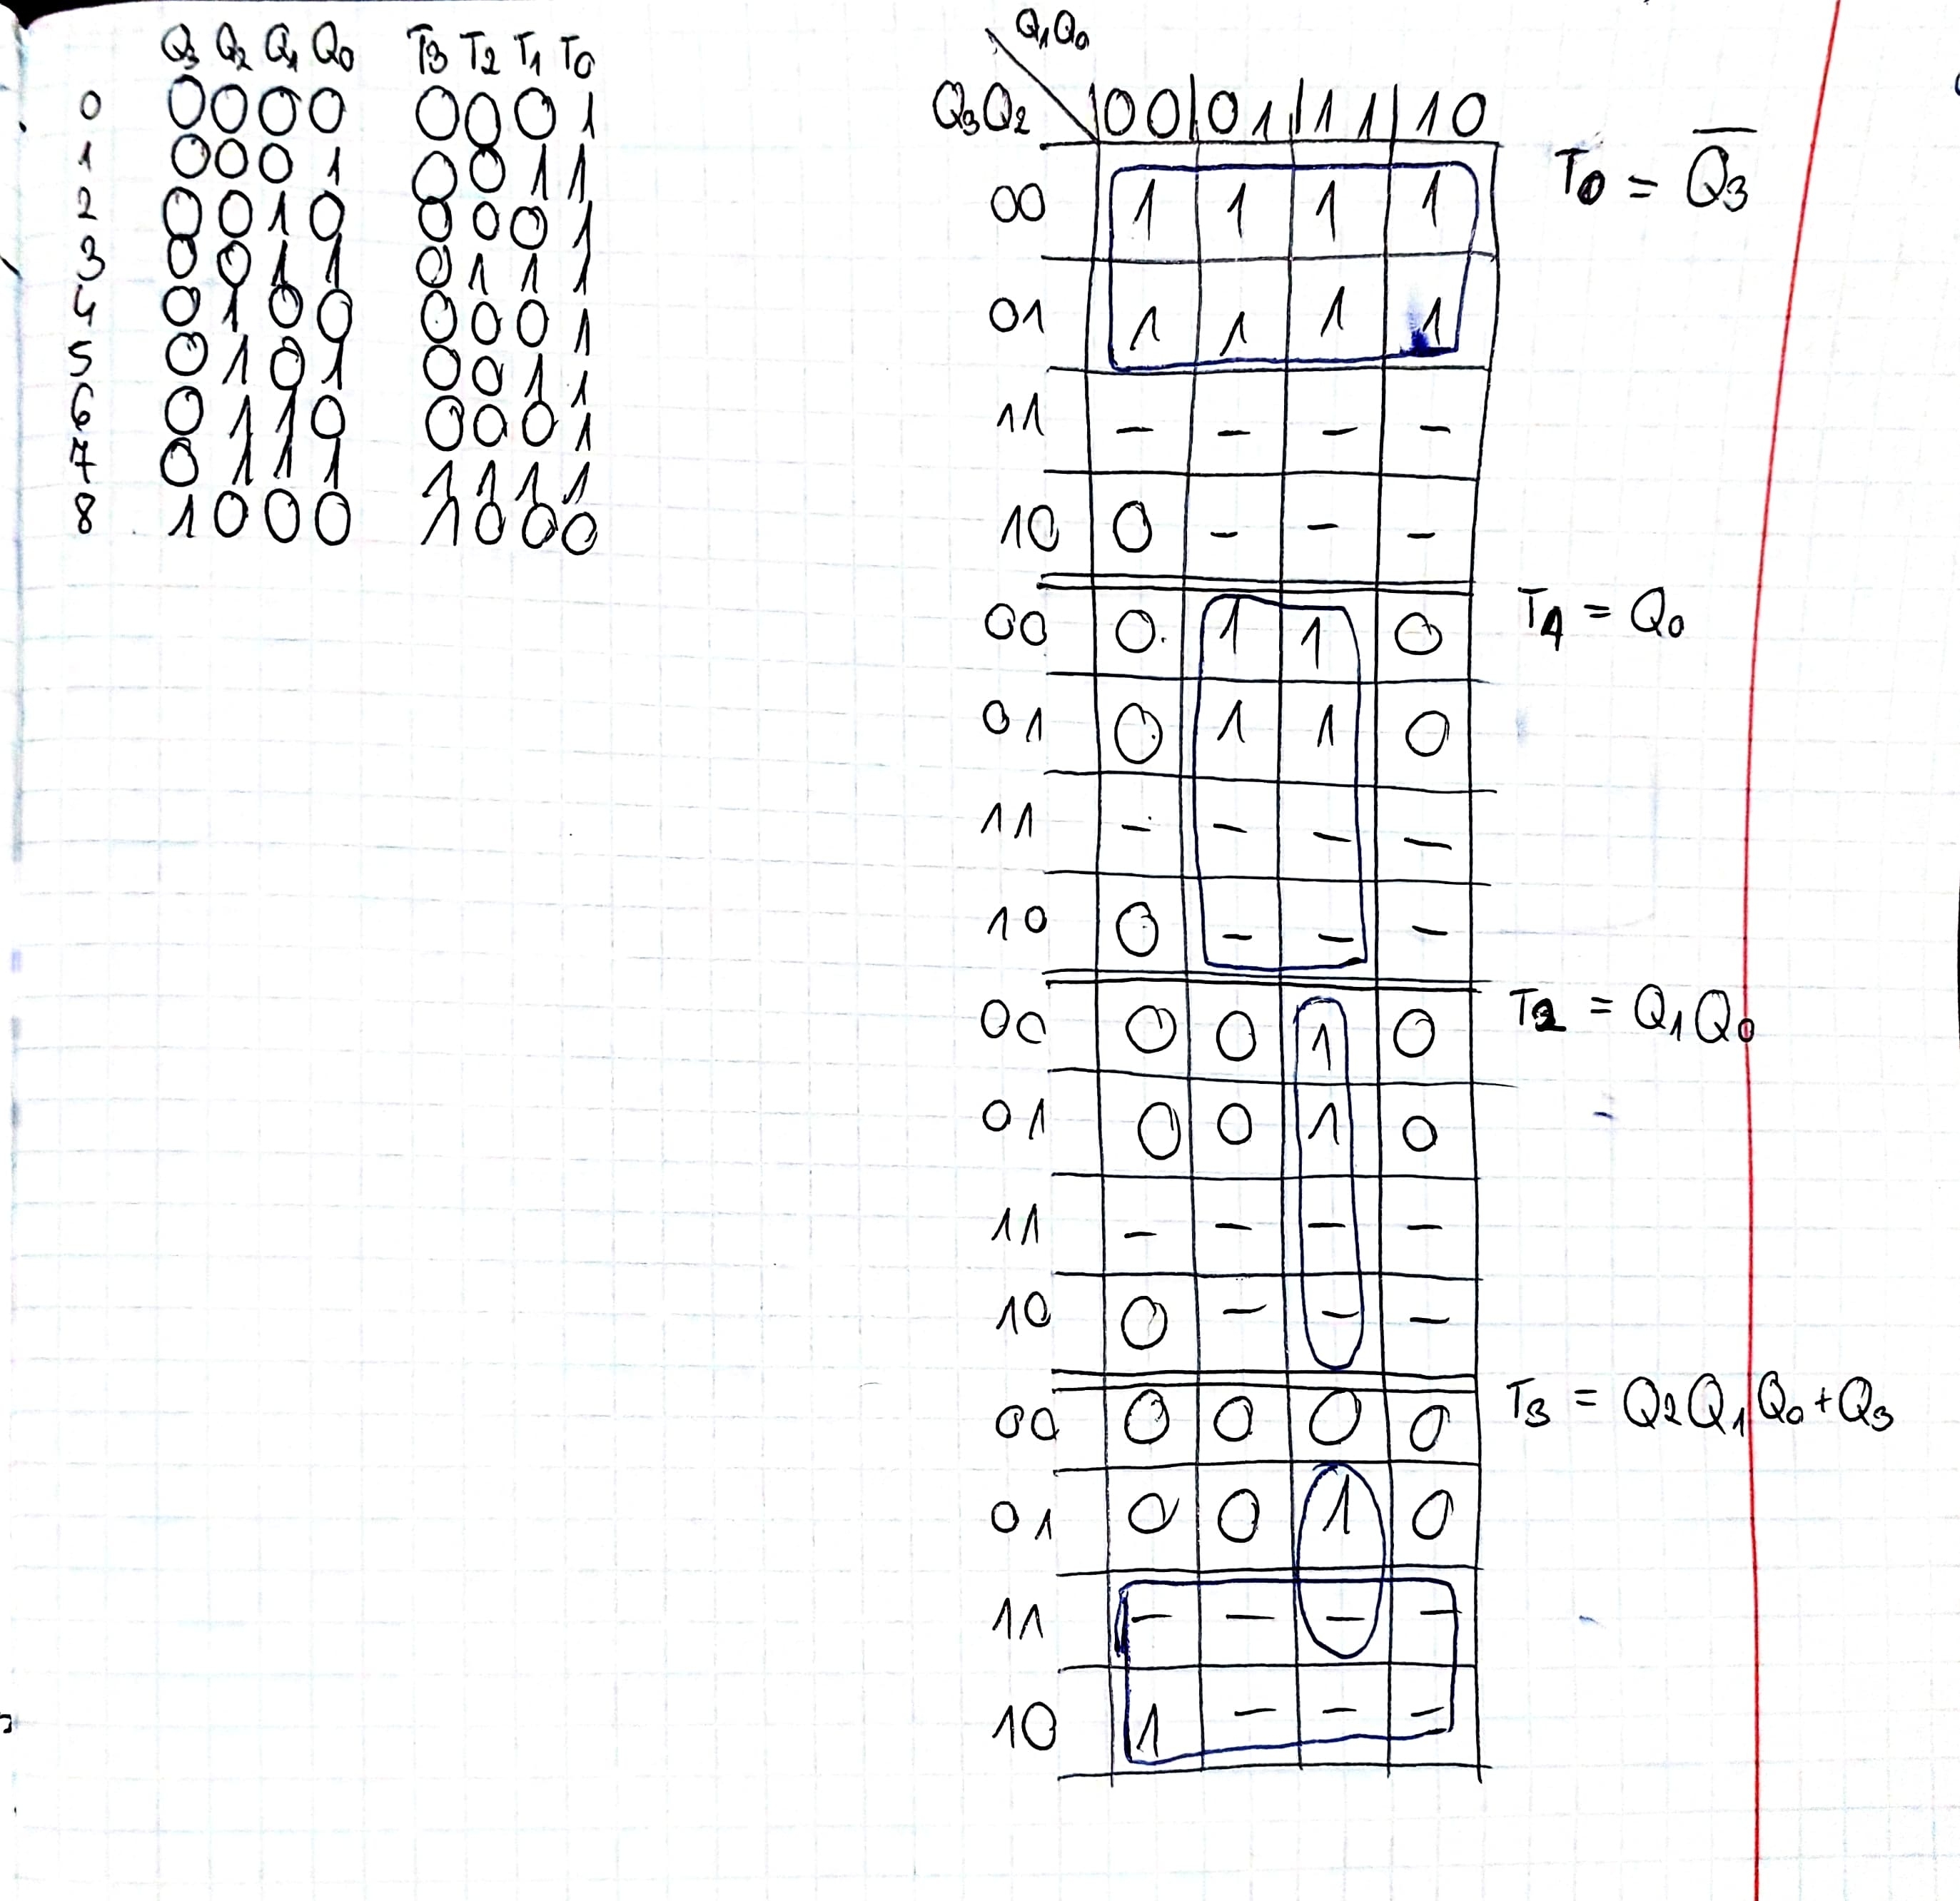 Q3 Q2 Q1 Q0 T3 T2 T1 T0
0 0 0 0 0 0 0 0 1
1 0 0 0 1 0 0 1 1
2 0 0 1 0 0 0 0 1
3 0 0 1 1 0 1 1 1
4 0 1 0 0 0 0 0 1
5 0 1 0 1 0 0 1 1
6 0 1 1 0 0 0 0 1
7 0 1 1 1 1 1 1 1
8 1 0 0 0 1 0 0 0
Q1Q0
Q3Q2 00 01 11 10
00 1 1 1 1 T0 = \overline{Q3}
01 1 1 1 1
11 - - - -
10 0 - - -
00 0 1 1 0 T1 = Q0
01 0 1 1 0
11 - - - -
10 0 - - -
00 0 0 1 0 T2 = Q1Q0
01 0 0 1 0
11 - - - -
10 0 - - -
00 0 0 0 0 T3 = Q2Q1Q0+Q3
01 0 0 1 0
11 - - - -
10 1 - - -